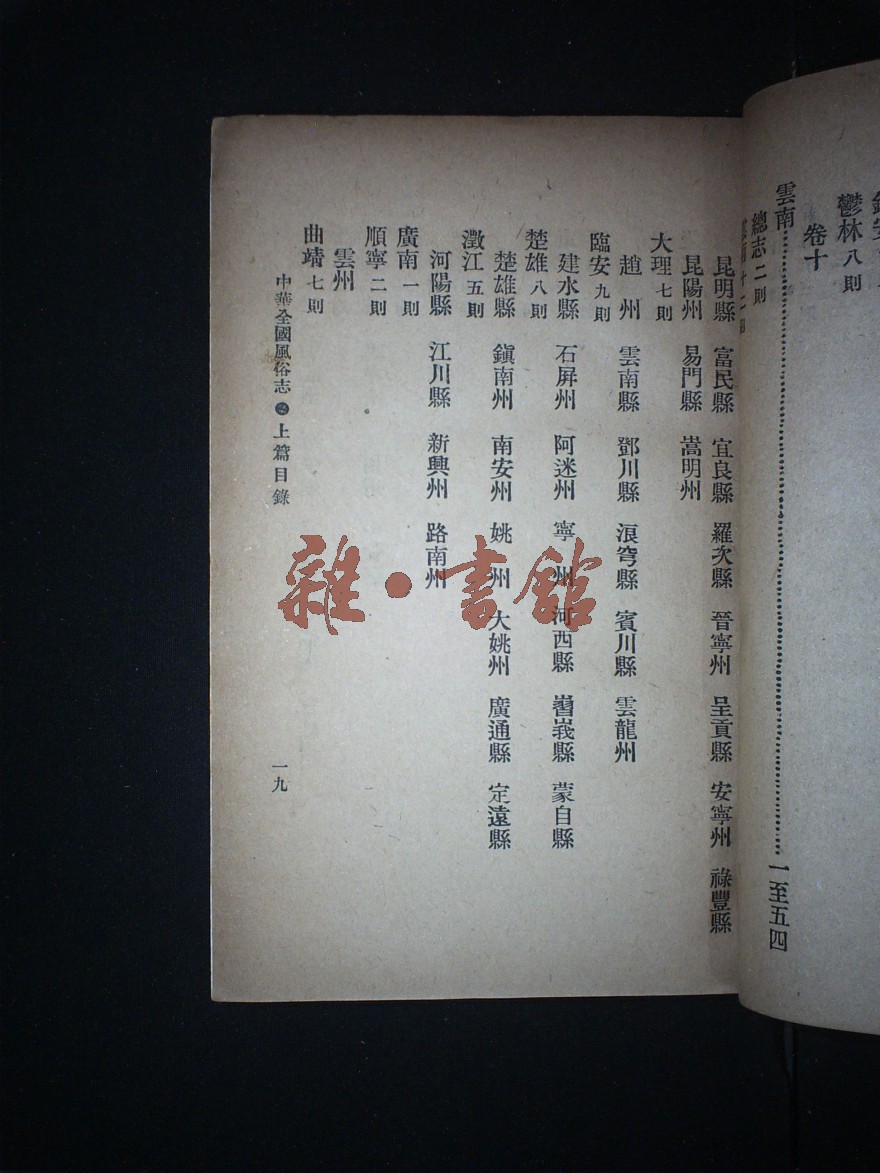 鬱林 八則
卷十
雲南 一至五四
總志 二則
昆明縣 富民縣 宜良縣 羅次縣 晉寧州 呈貢縣 安寧州 祿豐縣
昆陽州 易門縣 嵩明州
大理 七則
趙州 雲南縣 鄧川縣 浪穹縣 賓川縣 雲龍州
臨安 九則
建水縣 石屏州 阿迷州 寧州 河西縣 嶍峩縣 蒙自縣
楚雄 八則
楚雄縣 鎭南州 南安州 姚州 大姚州 廣通縣 定遠縣
澂江 五則
河陽縣 江川縣 新興州 路南州
廣南 一則
順寧 二則
雲州
曲靖 七則
中華全國風俗志 上篇目錄
一九
雜·書館